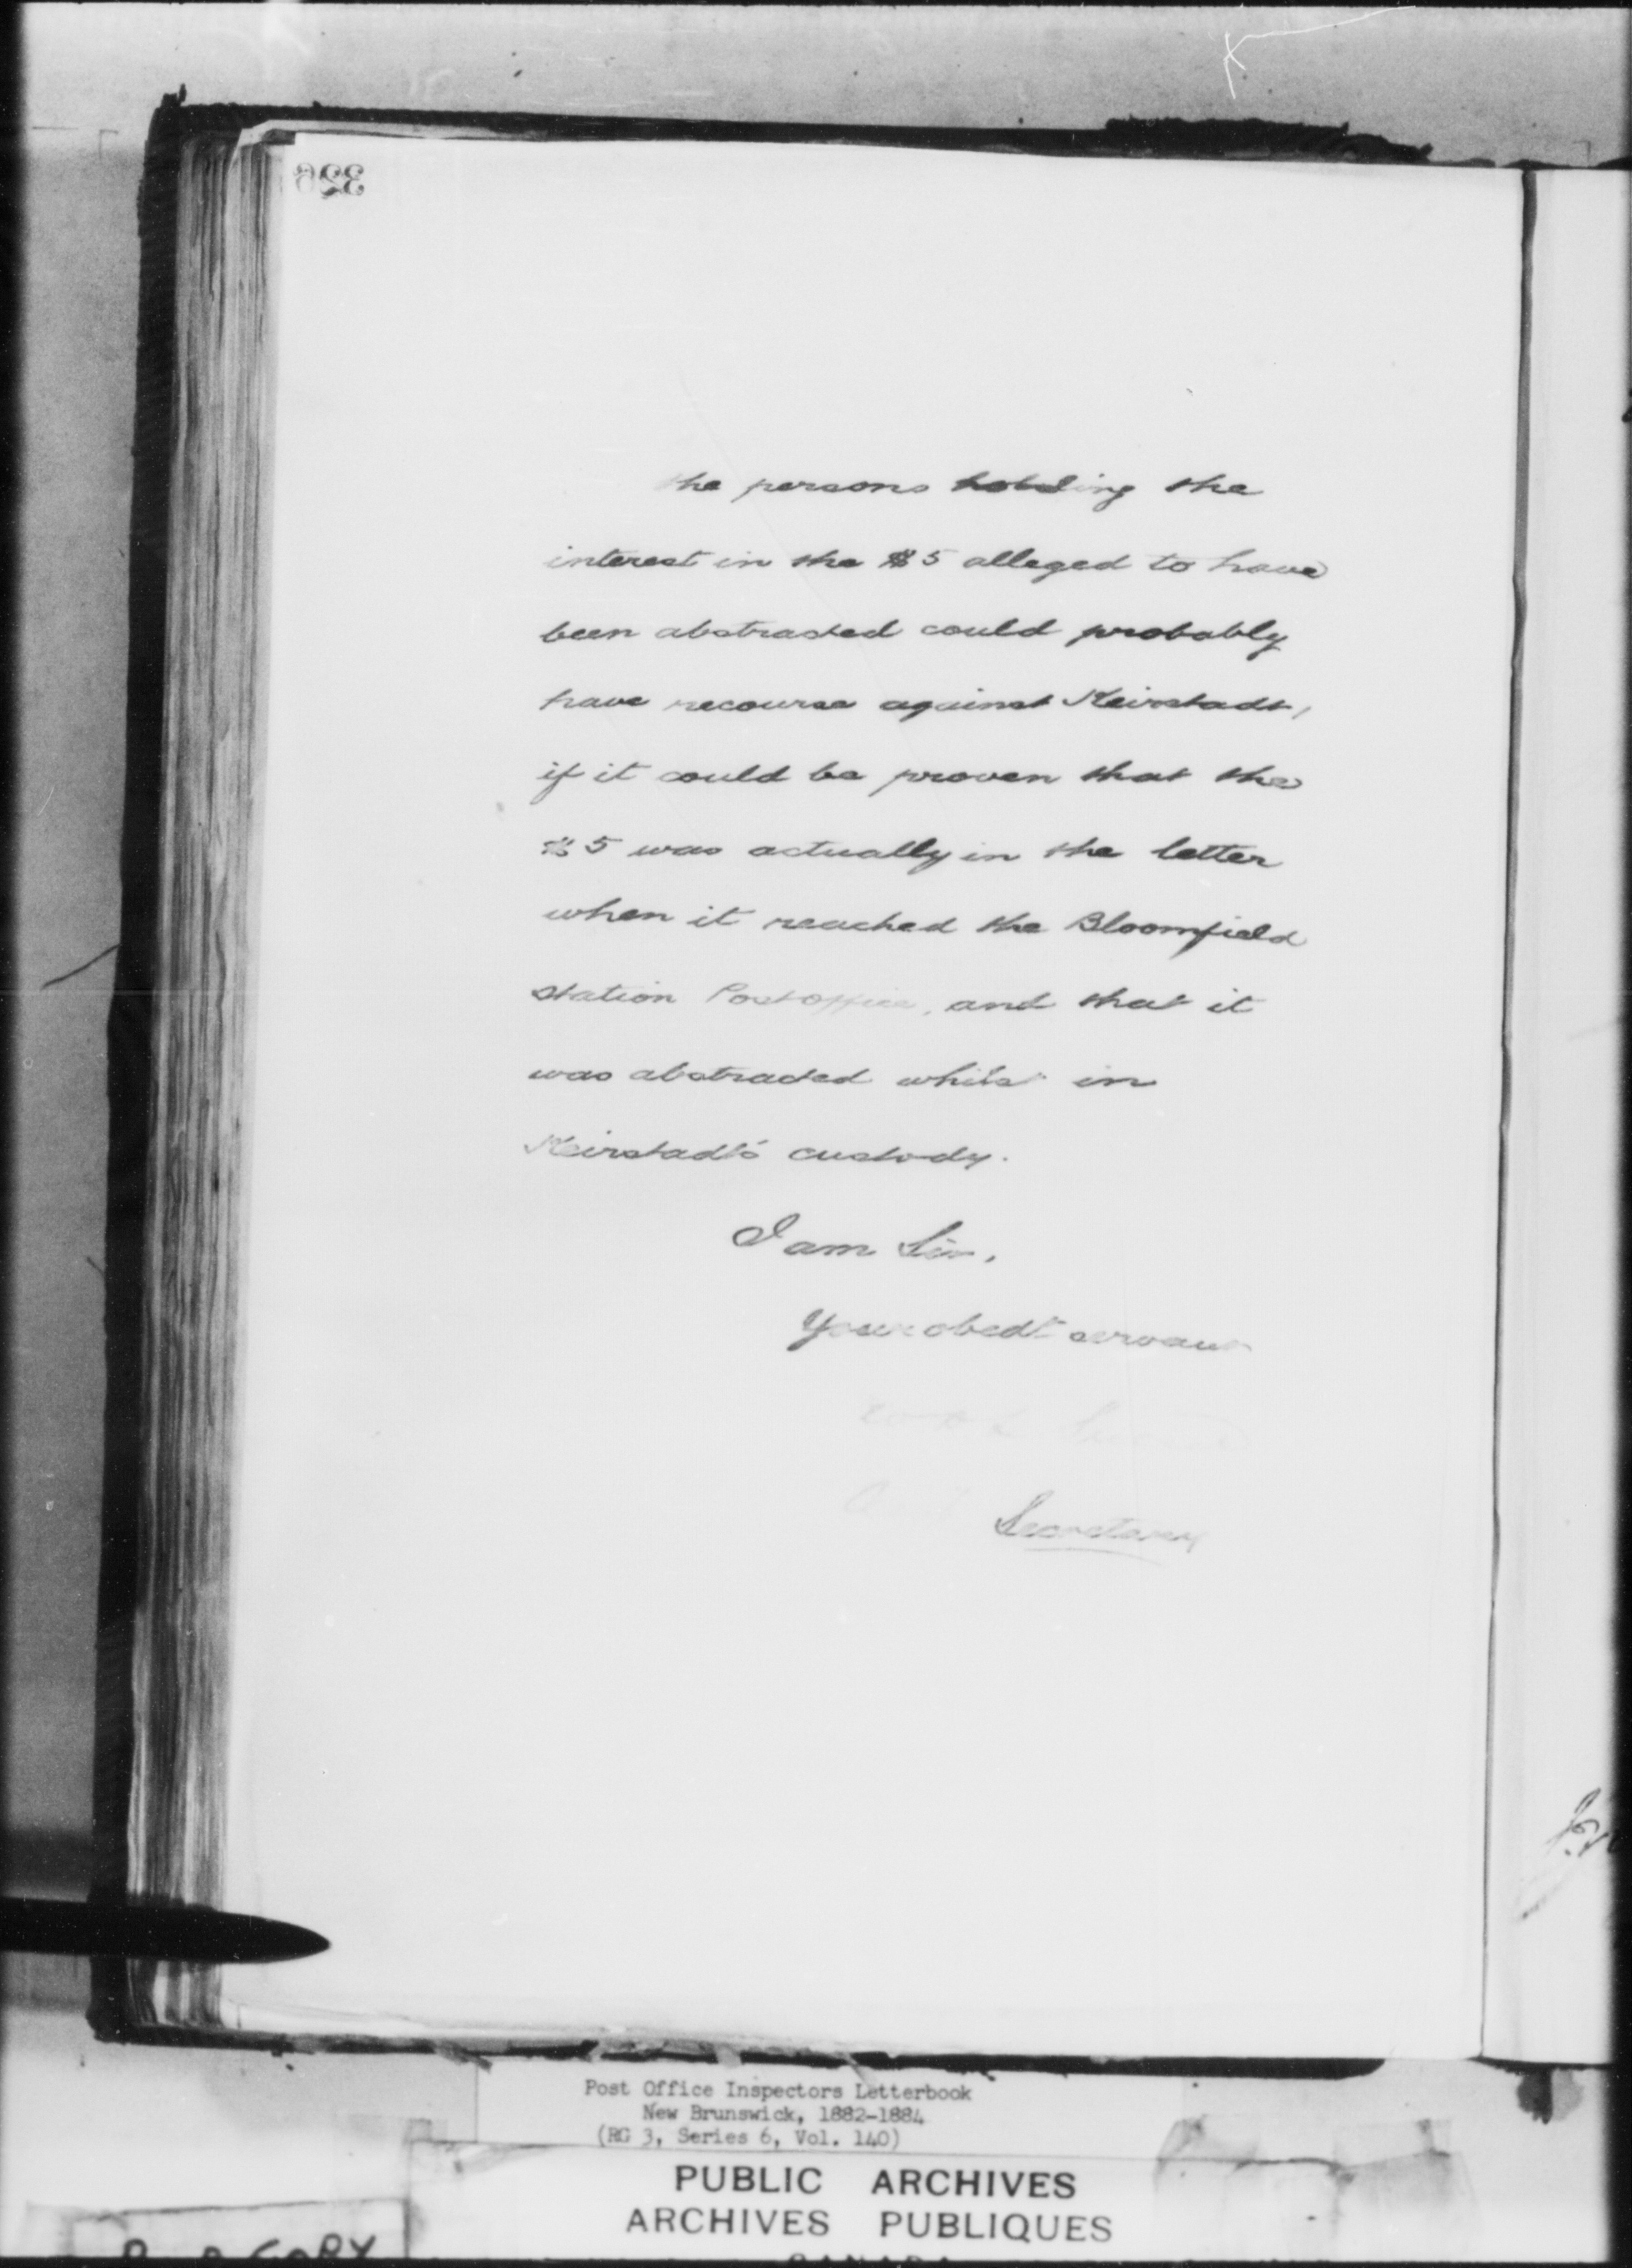 326
the persons holding the
interest in the $5 alleged to have
been abstracted could probably
have recourse against Keirstadt,
if it could be proven that the
$5 was actually in the letter
when it reached the Bloomfield
station Post office, and that it
was abstracted whilst in
Keirstadt's custody.
I am Sir,
Your obedt servant
Secretary
Post Office Inspectors Letterbook
New Brunswick, 1882-1884
(RG 3, Series 6, Vol. 140)
PUBLIC ARCHIVES
ARCHIVES PUBLIQUES
CANADA
COPY